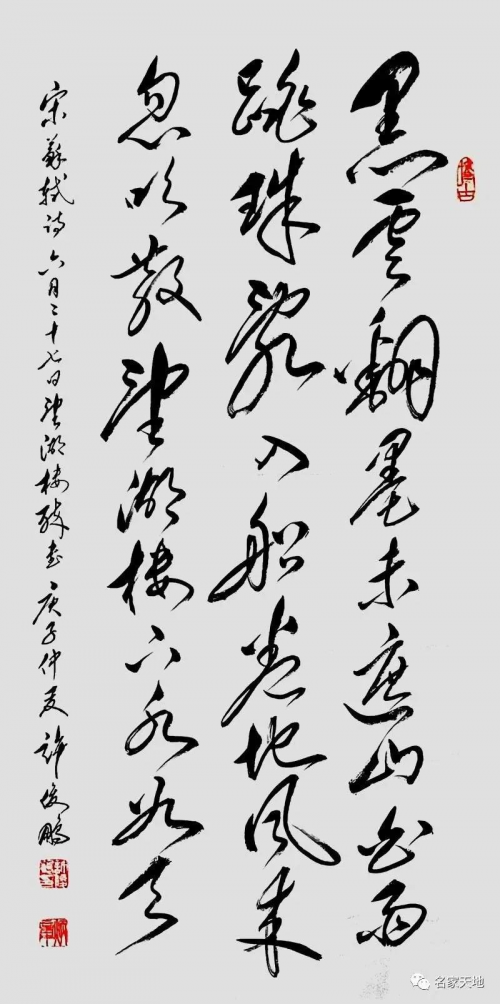 黑雲翻墨未遮山白雨
跳珠亂入船卷地風来
忽吹散望湖樓下水如天
宋蘇軾诗六月二十七日望湖樓醉書庚子仲夏許俊鹏
名家天地